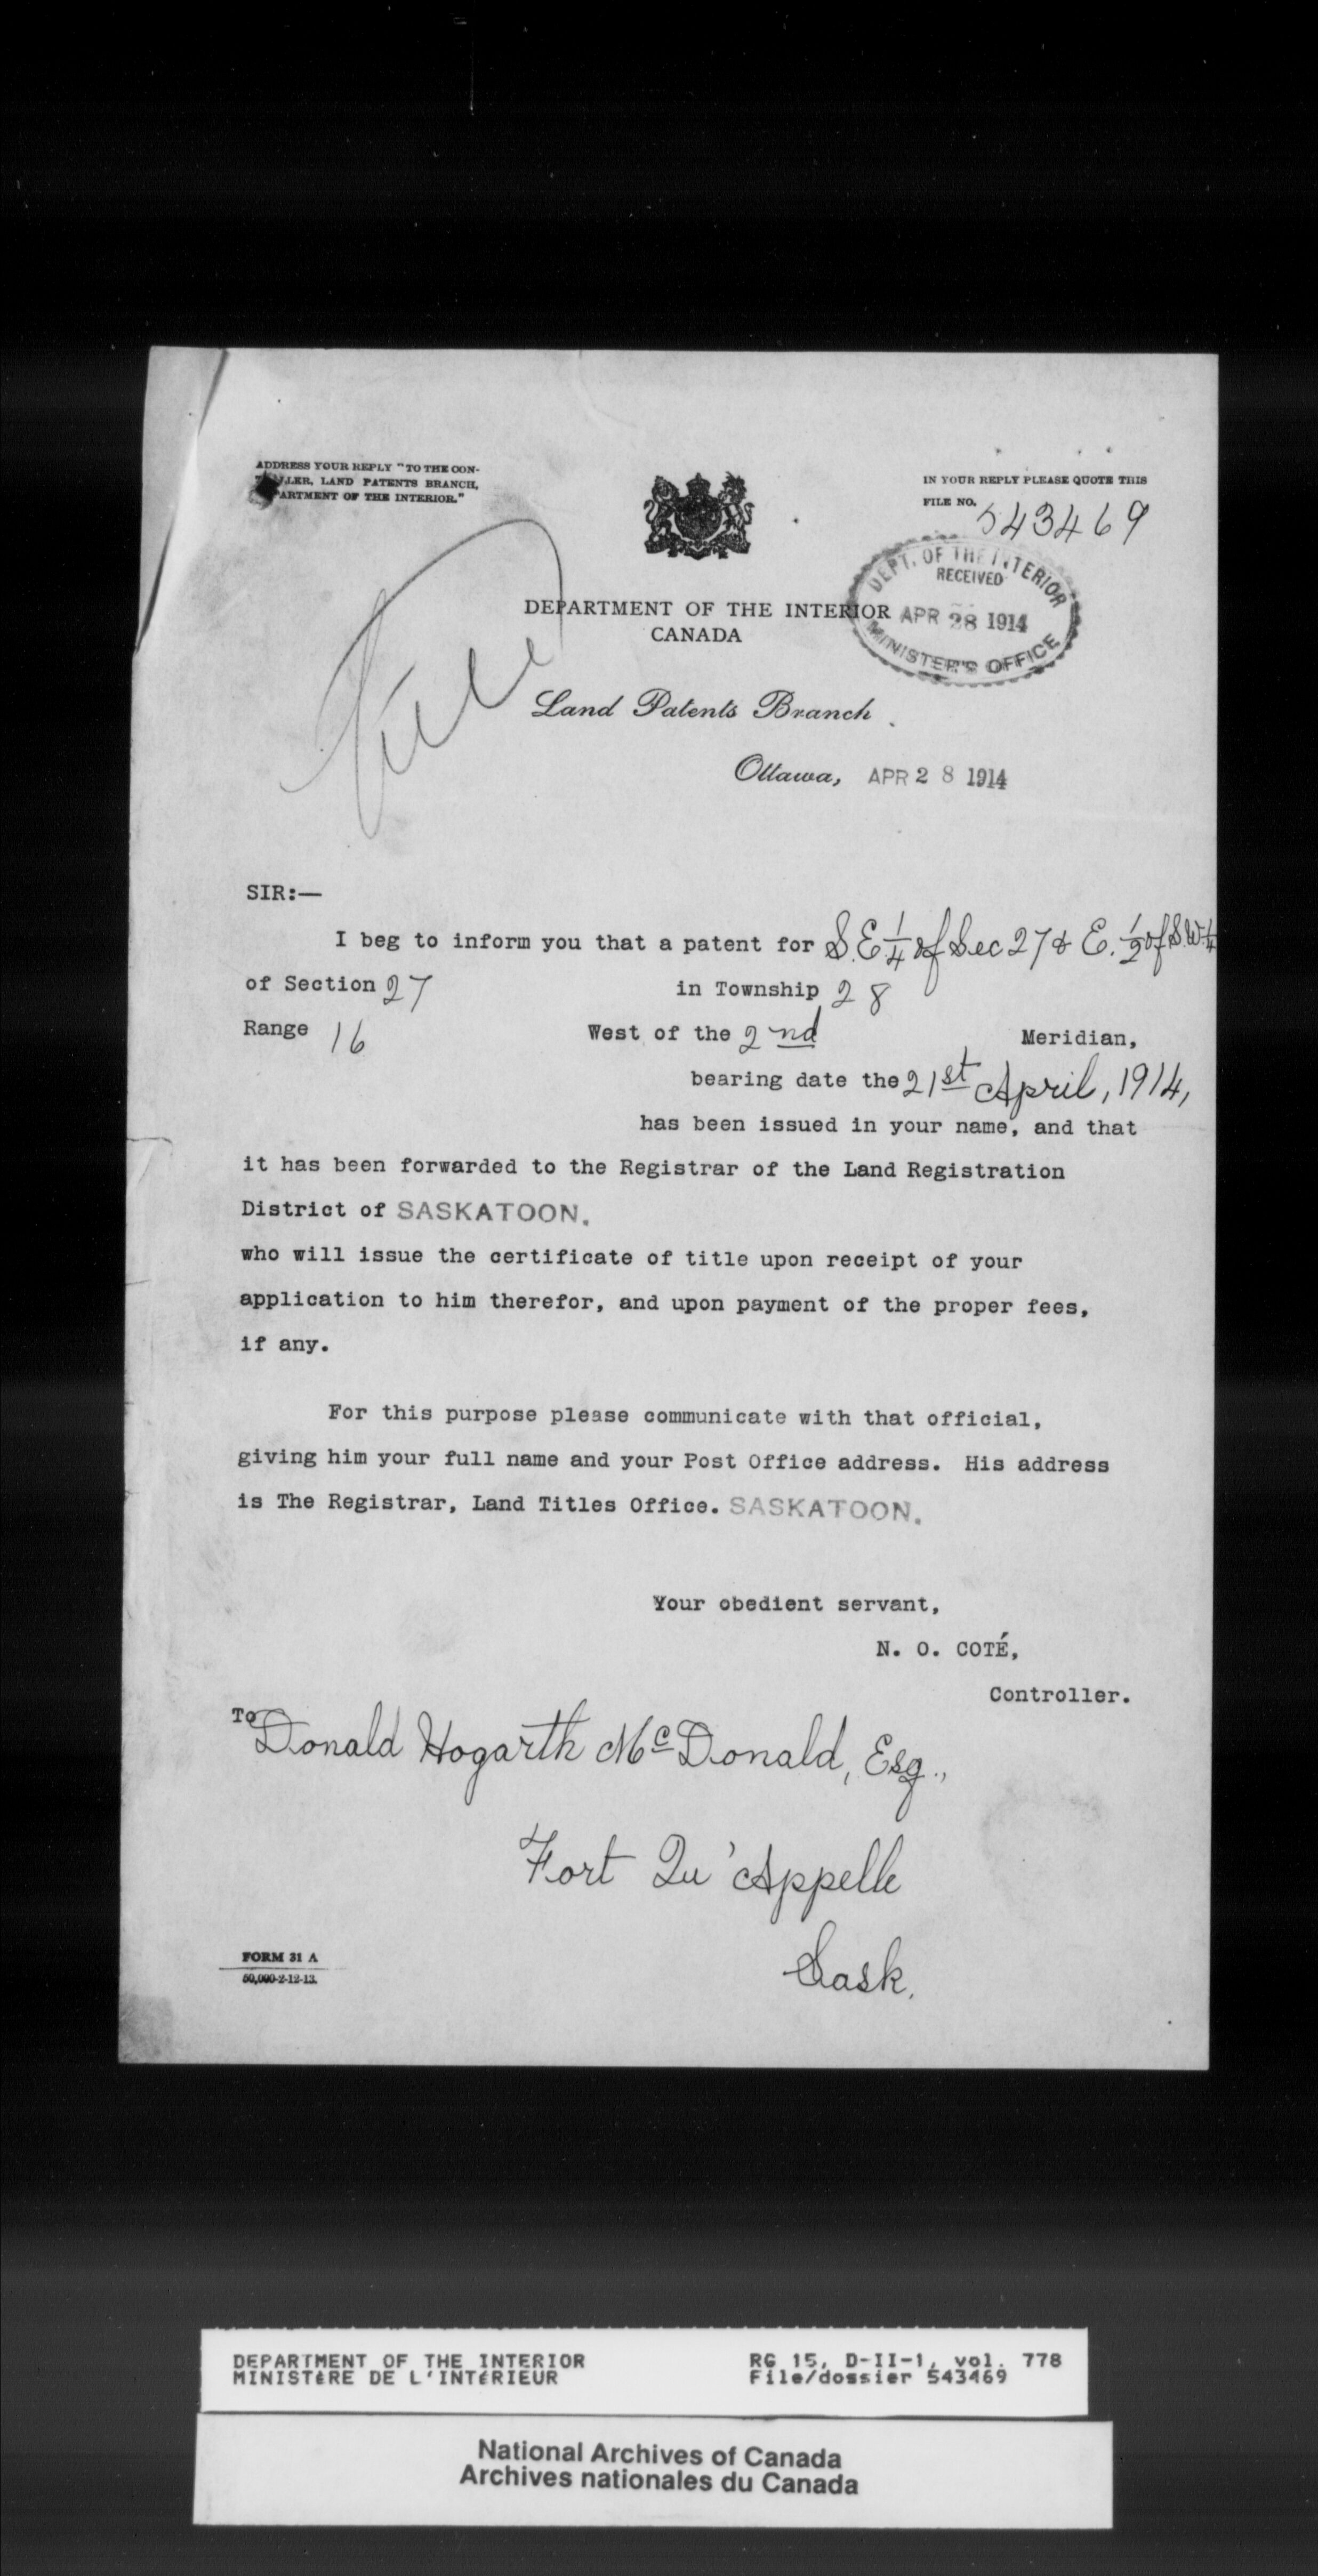 ADDRESS YOUR REPLY "TO THE CON-
LLER, LAND PATENTS BRANCH,
PARTMENT OF THE INTERIOR."
IN YOUR REPLY PLEASE QUOTE THIS
FILE NO. 543469
DEPT. OF THE INTERIOR
RECEIVED
APR 28 1914
MINISTER'S OFFICE
DEPARTMENT OF THE INTERIOR
CANADA
File
Land Patents Branch
Ottawa, APR 28 1914
SIR:—
I beg to inform you that a patent for S.E. 1/4 of Sec 27 & E. 1/2 of S.W. 1/4
of Section 27 in Township 28
Range 16 West of the 2nd Meridian,
bearing date the 21st April, 1914,
has been issued in your name, and that
it has been forwarded to the Registrar of the Land Registration
District of SASKATOON.
who will issue the certificate of title upon receipt of your
application to him therefor, and upon payment of the proper fees,
if any.
For this purpose please communicate with that official,
giving him your full name and your Post Office address. His address
is The Registrar, Land Titles Office. SASKATOON.
Your obedient servant,
N. O. COTÉ,
Controller.
To Donald Hogarth McDonald, Esq.,
Fort Qu'Appelle
Sask.
FORM 31 A
50,000-2-12-13.
DEPARTMENT OF THE INTERIOR
MINISTÈRE DE L'INTÉRIEUR
RG 15, D-II-1, vol. 778
File/dossier 543469
National Archives of Canada
Archives nationales du Canada